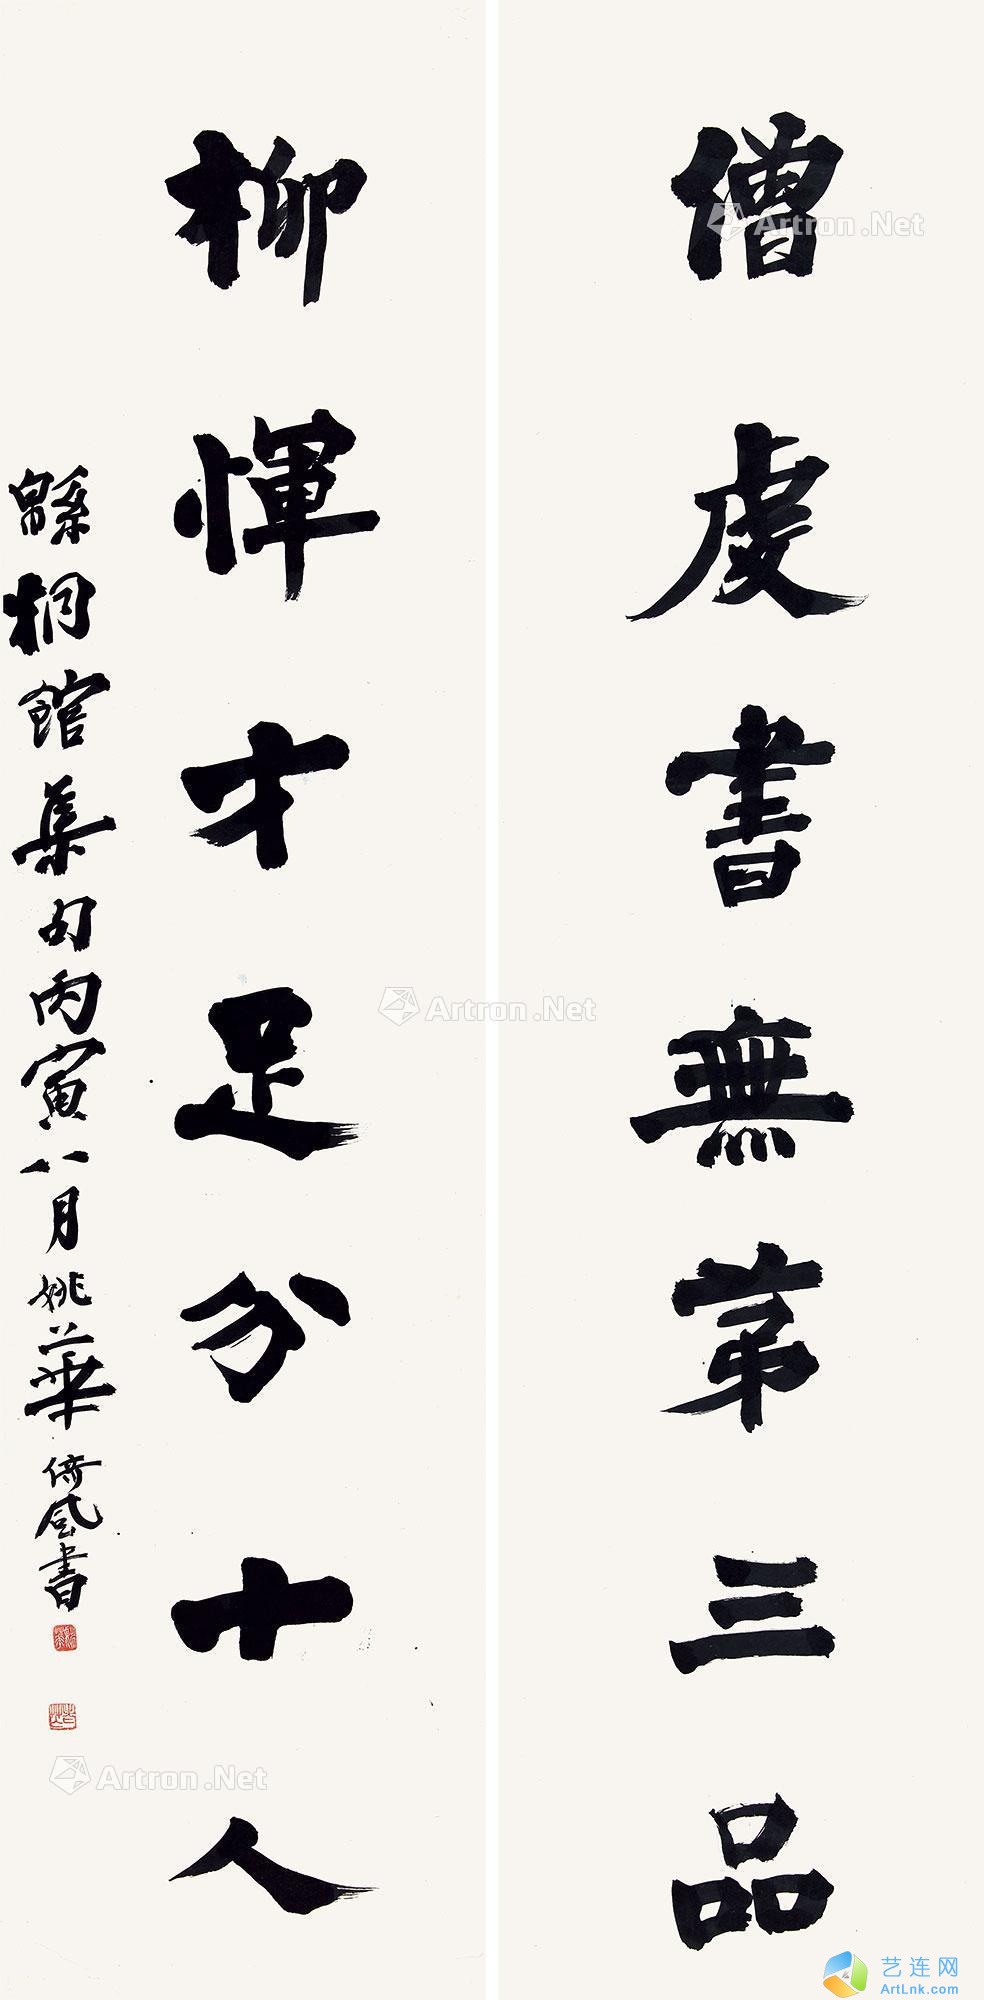 僧虔書無第三品
柳惲才足分十人
緜桐館集句丙寅八月姚華倚咸書
Artron.Net
Artron.Net
Artron.Net
艺连网
ArtLnk.com